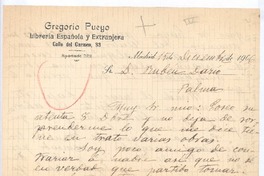 Gregorio Pueyo
Librería Española y Extranjera
Calle del Carmen, 33
Apartado 322
Madrid Diciembre
Sr. D. Rubén Darío
Palma
Muy Sr. mio: Como su
atenta 8 y no deja de sor-
prenderme lo que me dice
en trato varias obras.
Soy poco amigo de con-
trariar á nadie así que no sé
en verdad que partido tomar